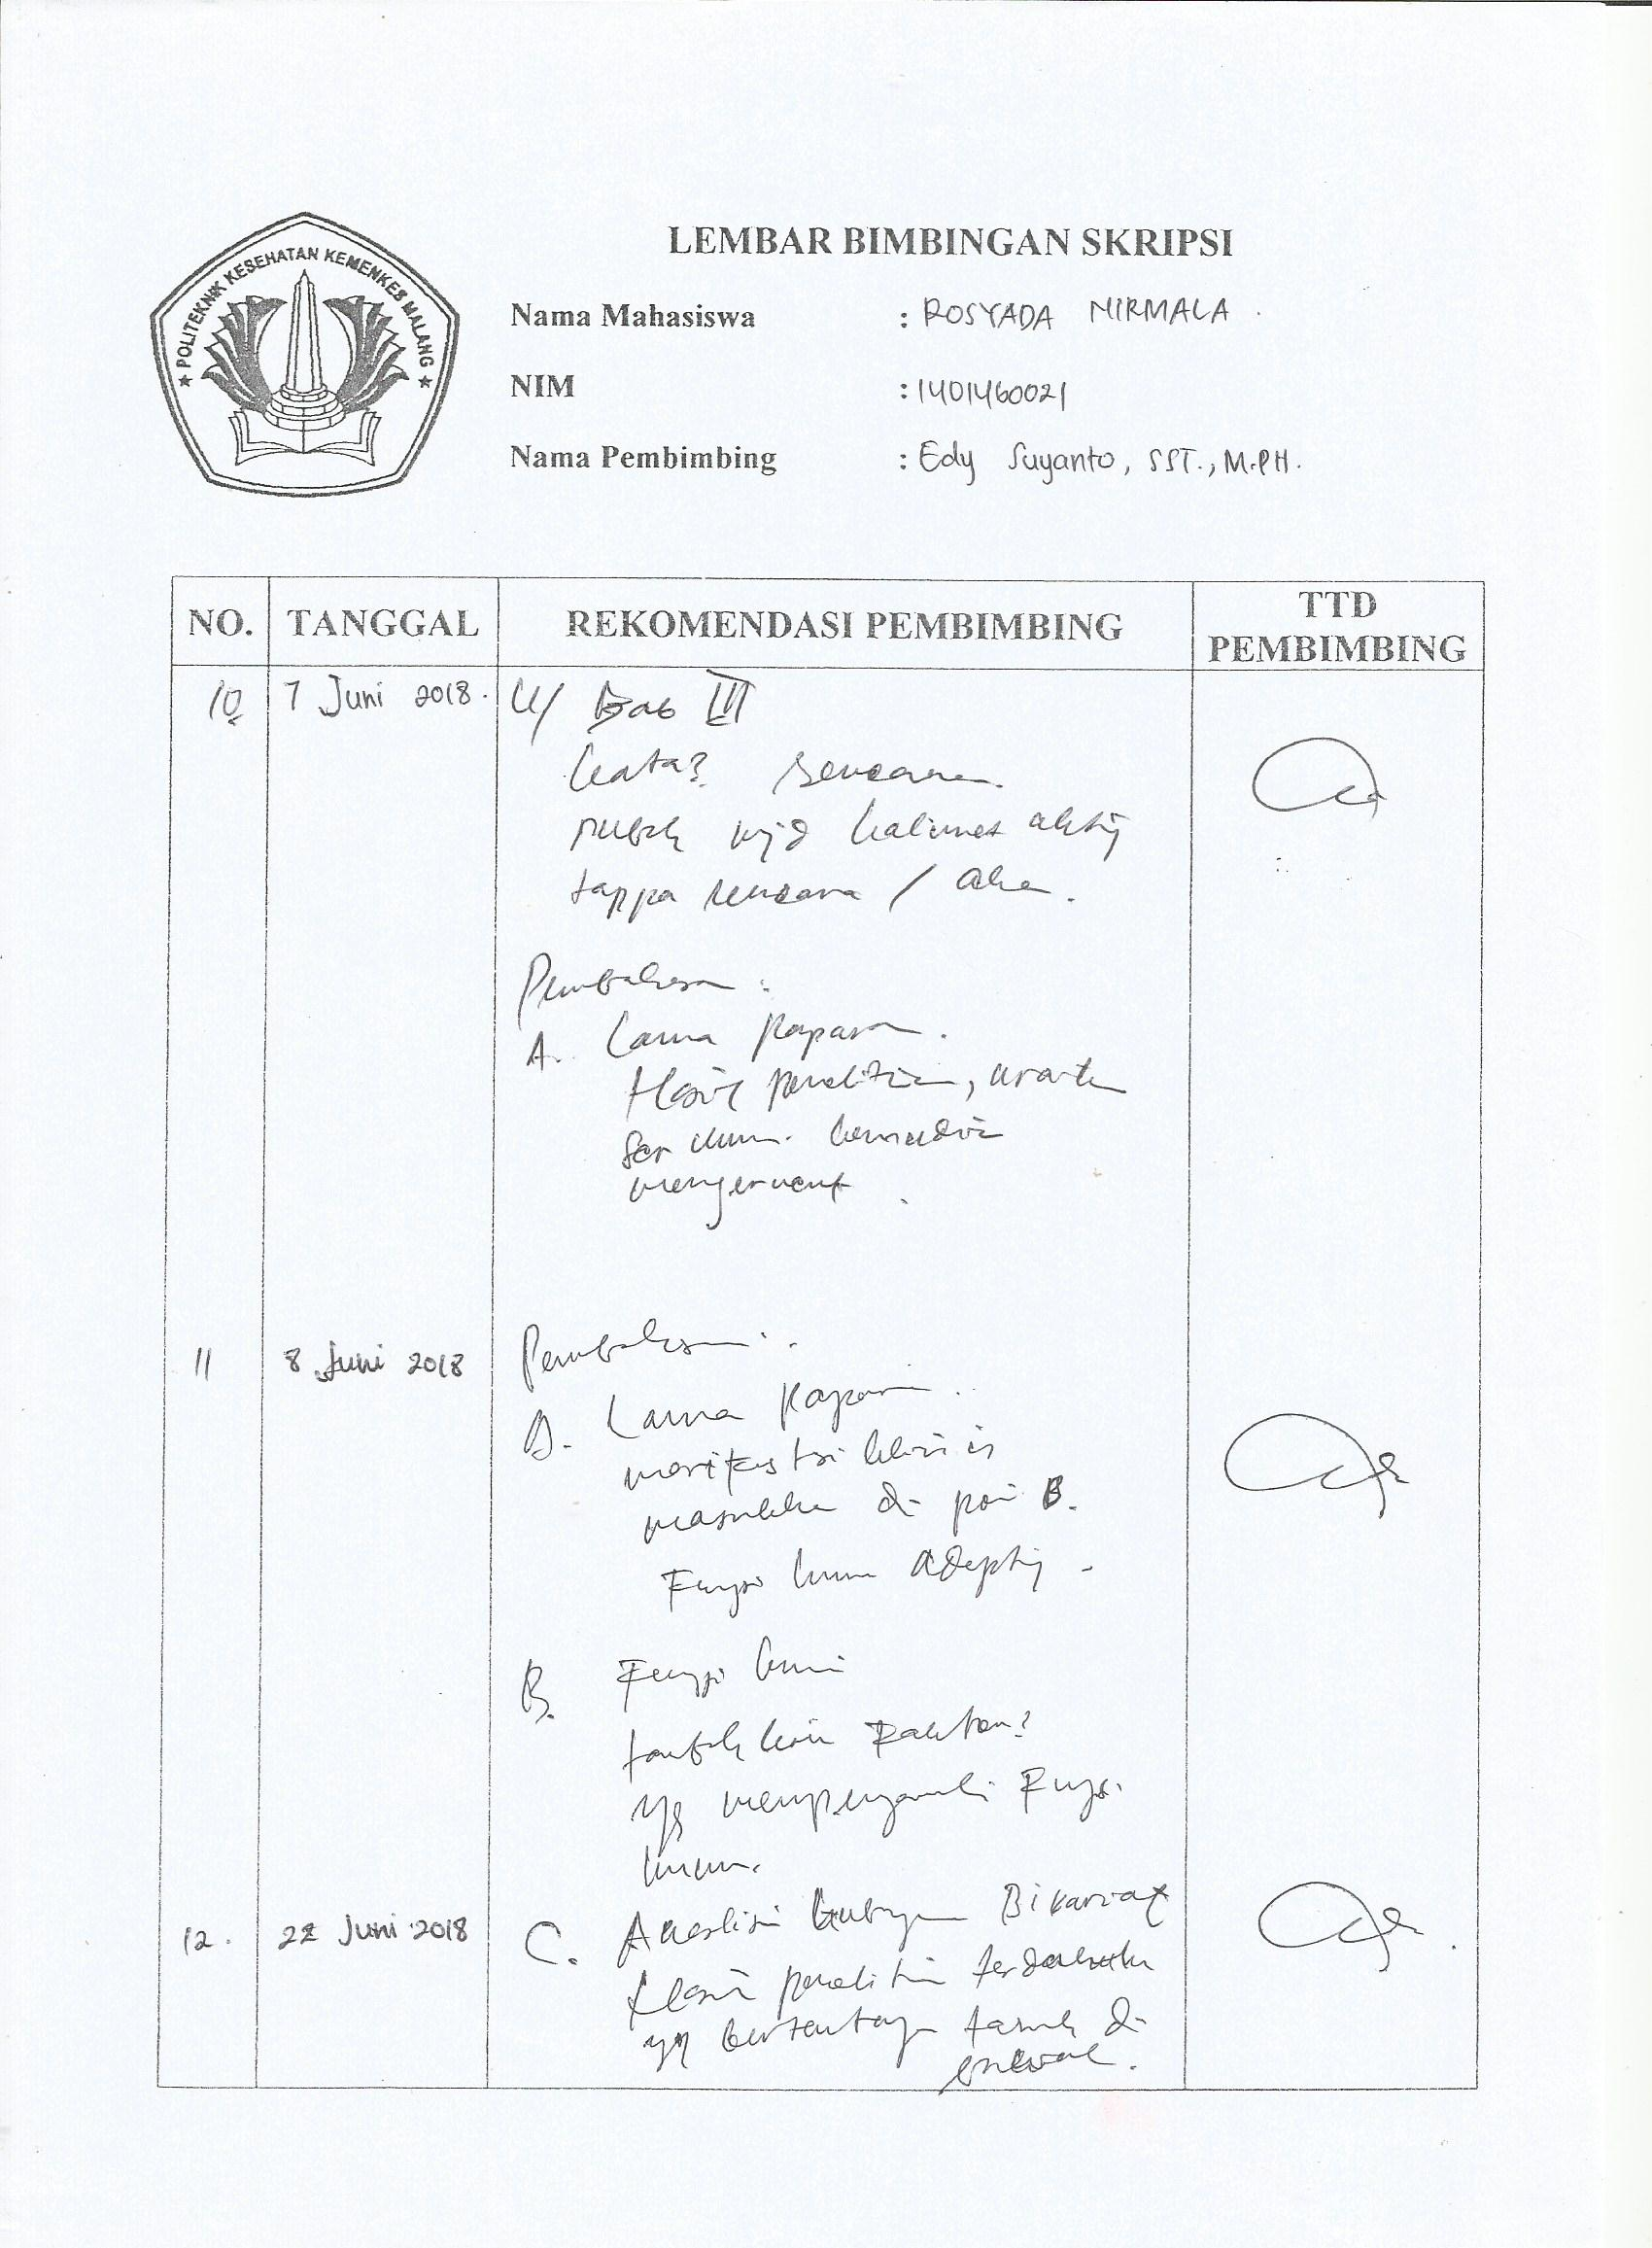 POLITEKNIK KESEHATAN KEMENKES MALANG
LEMBAR BIMBINGAN SKRIPSI
Nama Mahasiswa : ROSYADA NIRMALA
NIM : 1401460021
Nama Pembimbing : Edy Suyanto, SST., M.PH.
NO. TANGGAL REKOMENDASI PEMBIMBING TTD PEMBIMBING
10. 7 Juni 2018. U/ Bab III
kata2 rencana.
rubah mjd kalimat aktif
tanpa rencana / akan.
Pembahasan :
A. Lama Paparan.
Hasil penelitian, uraikan
kemudian
mengerucut
11 8 Juni 2018 Pembahasan :
A. Lama Paparan.
manifestasi klinis
masukkan di poin B.
Fungsi
B. Fungsi
tambahkan Faktor2
yg mempengaruhi Fungsi
12. 22 Juni 2018 C. Analisis Hubungan Bivariat
Hasil penelitian terdahulu
yg bertentangan taruh di